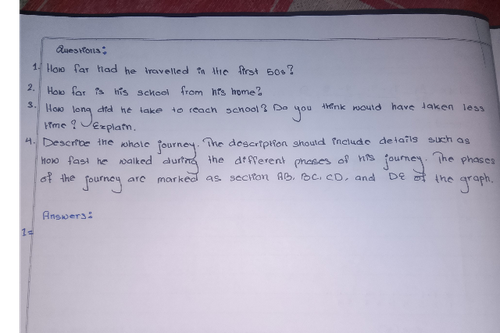 Questions:
1. How far had he travelled in the first 50s?
2. How far is his school from his home?
3. How long did he take to reach school? Do you think would have taken less
time? Explain.
4. Describe the whole journey. The description should include details such as
how fast he walked during the different phases of his journey. The phases
of the journey are marked as section AB, BC, CD, and DE of the graph.
Answers:
1=